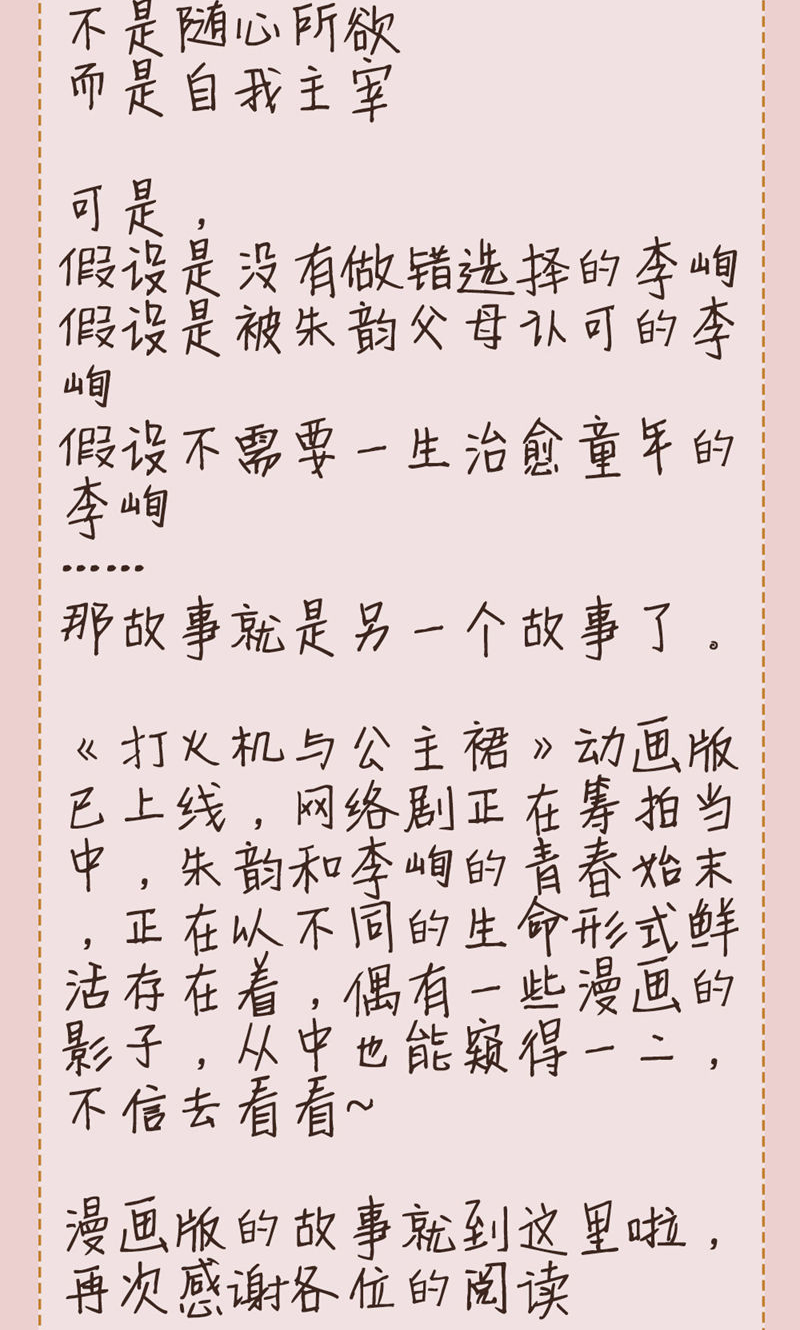 不是随心所欲
而是自我主宰
可是，
假设是没有做错选择的李峋
假设是被朱韵父母认可的李
峋
假设不需要一生治愈童年的
李峋
……
那故事就是另一个故事了。
《打火机与公主裙》动画版
已上线，网络剧正在筹拍当
中，朱韵和李峋的青春始末
，正在以不同的生命形式鲜
活存在着，偶有一些漫画的
影子，从中也能窥得一二，
不信去看看~
漫画版的故事就到这里啦，
再次感谢各位的阅读